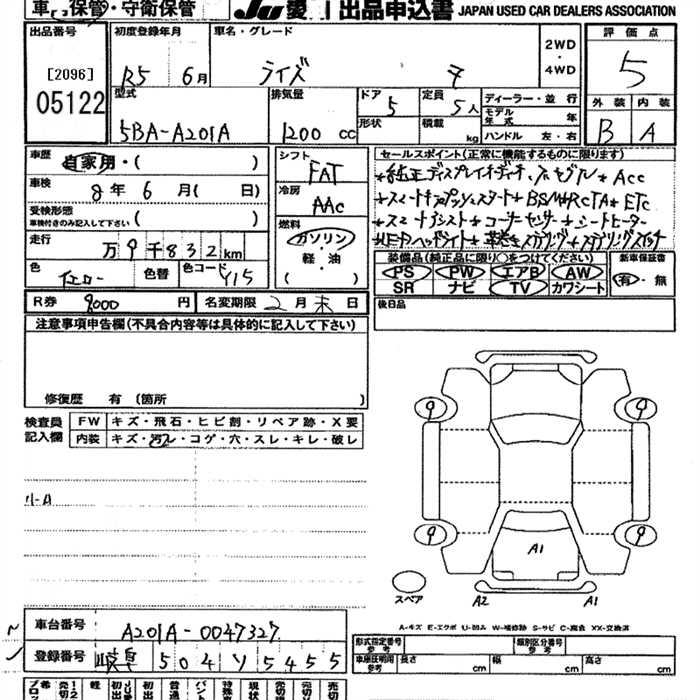 車 保管・守衛保管 JU 愛 出品申込書 JAPAN USED CAR DEALERS ASSOCIATION
出品番号 初度登録年月 車名・グレード 2WD・4WD 評価点
[2096] R5 6月 ライズ Z 5
05122 型式 排気量 ドア 5 定員 5人 ディーラー・並行 外装 内装
5BA-A201A 1200 cc 形状 積載 kg モデル年式 年 ハンドル 左・右 B A
車歴 自家用・( ) シフト FAT セールスポイント(正常に機能するものに限ります)
車検 8年 6月( 日) 冷房 AAC *純正ディスプレイオーディオ * Acc
受検形態 車検付きのみ記入して下さい ( ) +スマートキープッシュスタート+BSM+RCTA*ETC
燃料 ガソリン 軽・油 ( ) +スマートアシスト+コーナーセンサー+シートヒーター
走行 万 9千832km LEDヘッドライト+革巻きステアリング+ステアリングスイッチ
色 イエロー 色替 色コード Y15 装備品(純正品に限り○をつけてください) 新車保証書
PS PW エアB AW 有・無
SR ナビ TV カワシート
R券 9000 円 名変期限 2月末日 後日品
注意事項申告欄(不具合内容等は具体的に記入して下さい)
修復歴 有 (箇所 )
検査員記入欄 FW キズ・飛石・ヒビ割・リペア跡・X要
内装 キズ・汚レ・コゲ・穴・スレ・キレ・破レ
9 9
9 9
小A
A1
スペア A2 A1
A-キズ E-エクボ U-凹み W-補修跡 S-サビ C-腐食 XX-交換済
車台番号 A201A-0047327
登録番号 岐阜 504 ソ 5455
形式指定番号 参考 類別区分番号 参考
車庫証明用 参考 長さ cm 幅 cm 高さ cm